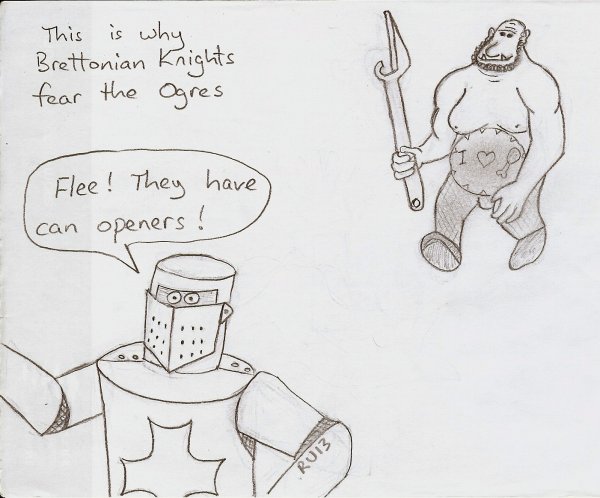 This is why
Brettonian Knights
fear the Ogres
Flee! They have
can openers!
I
RU13